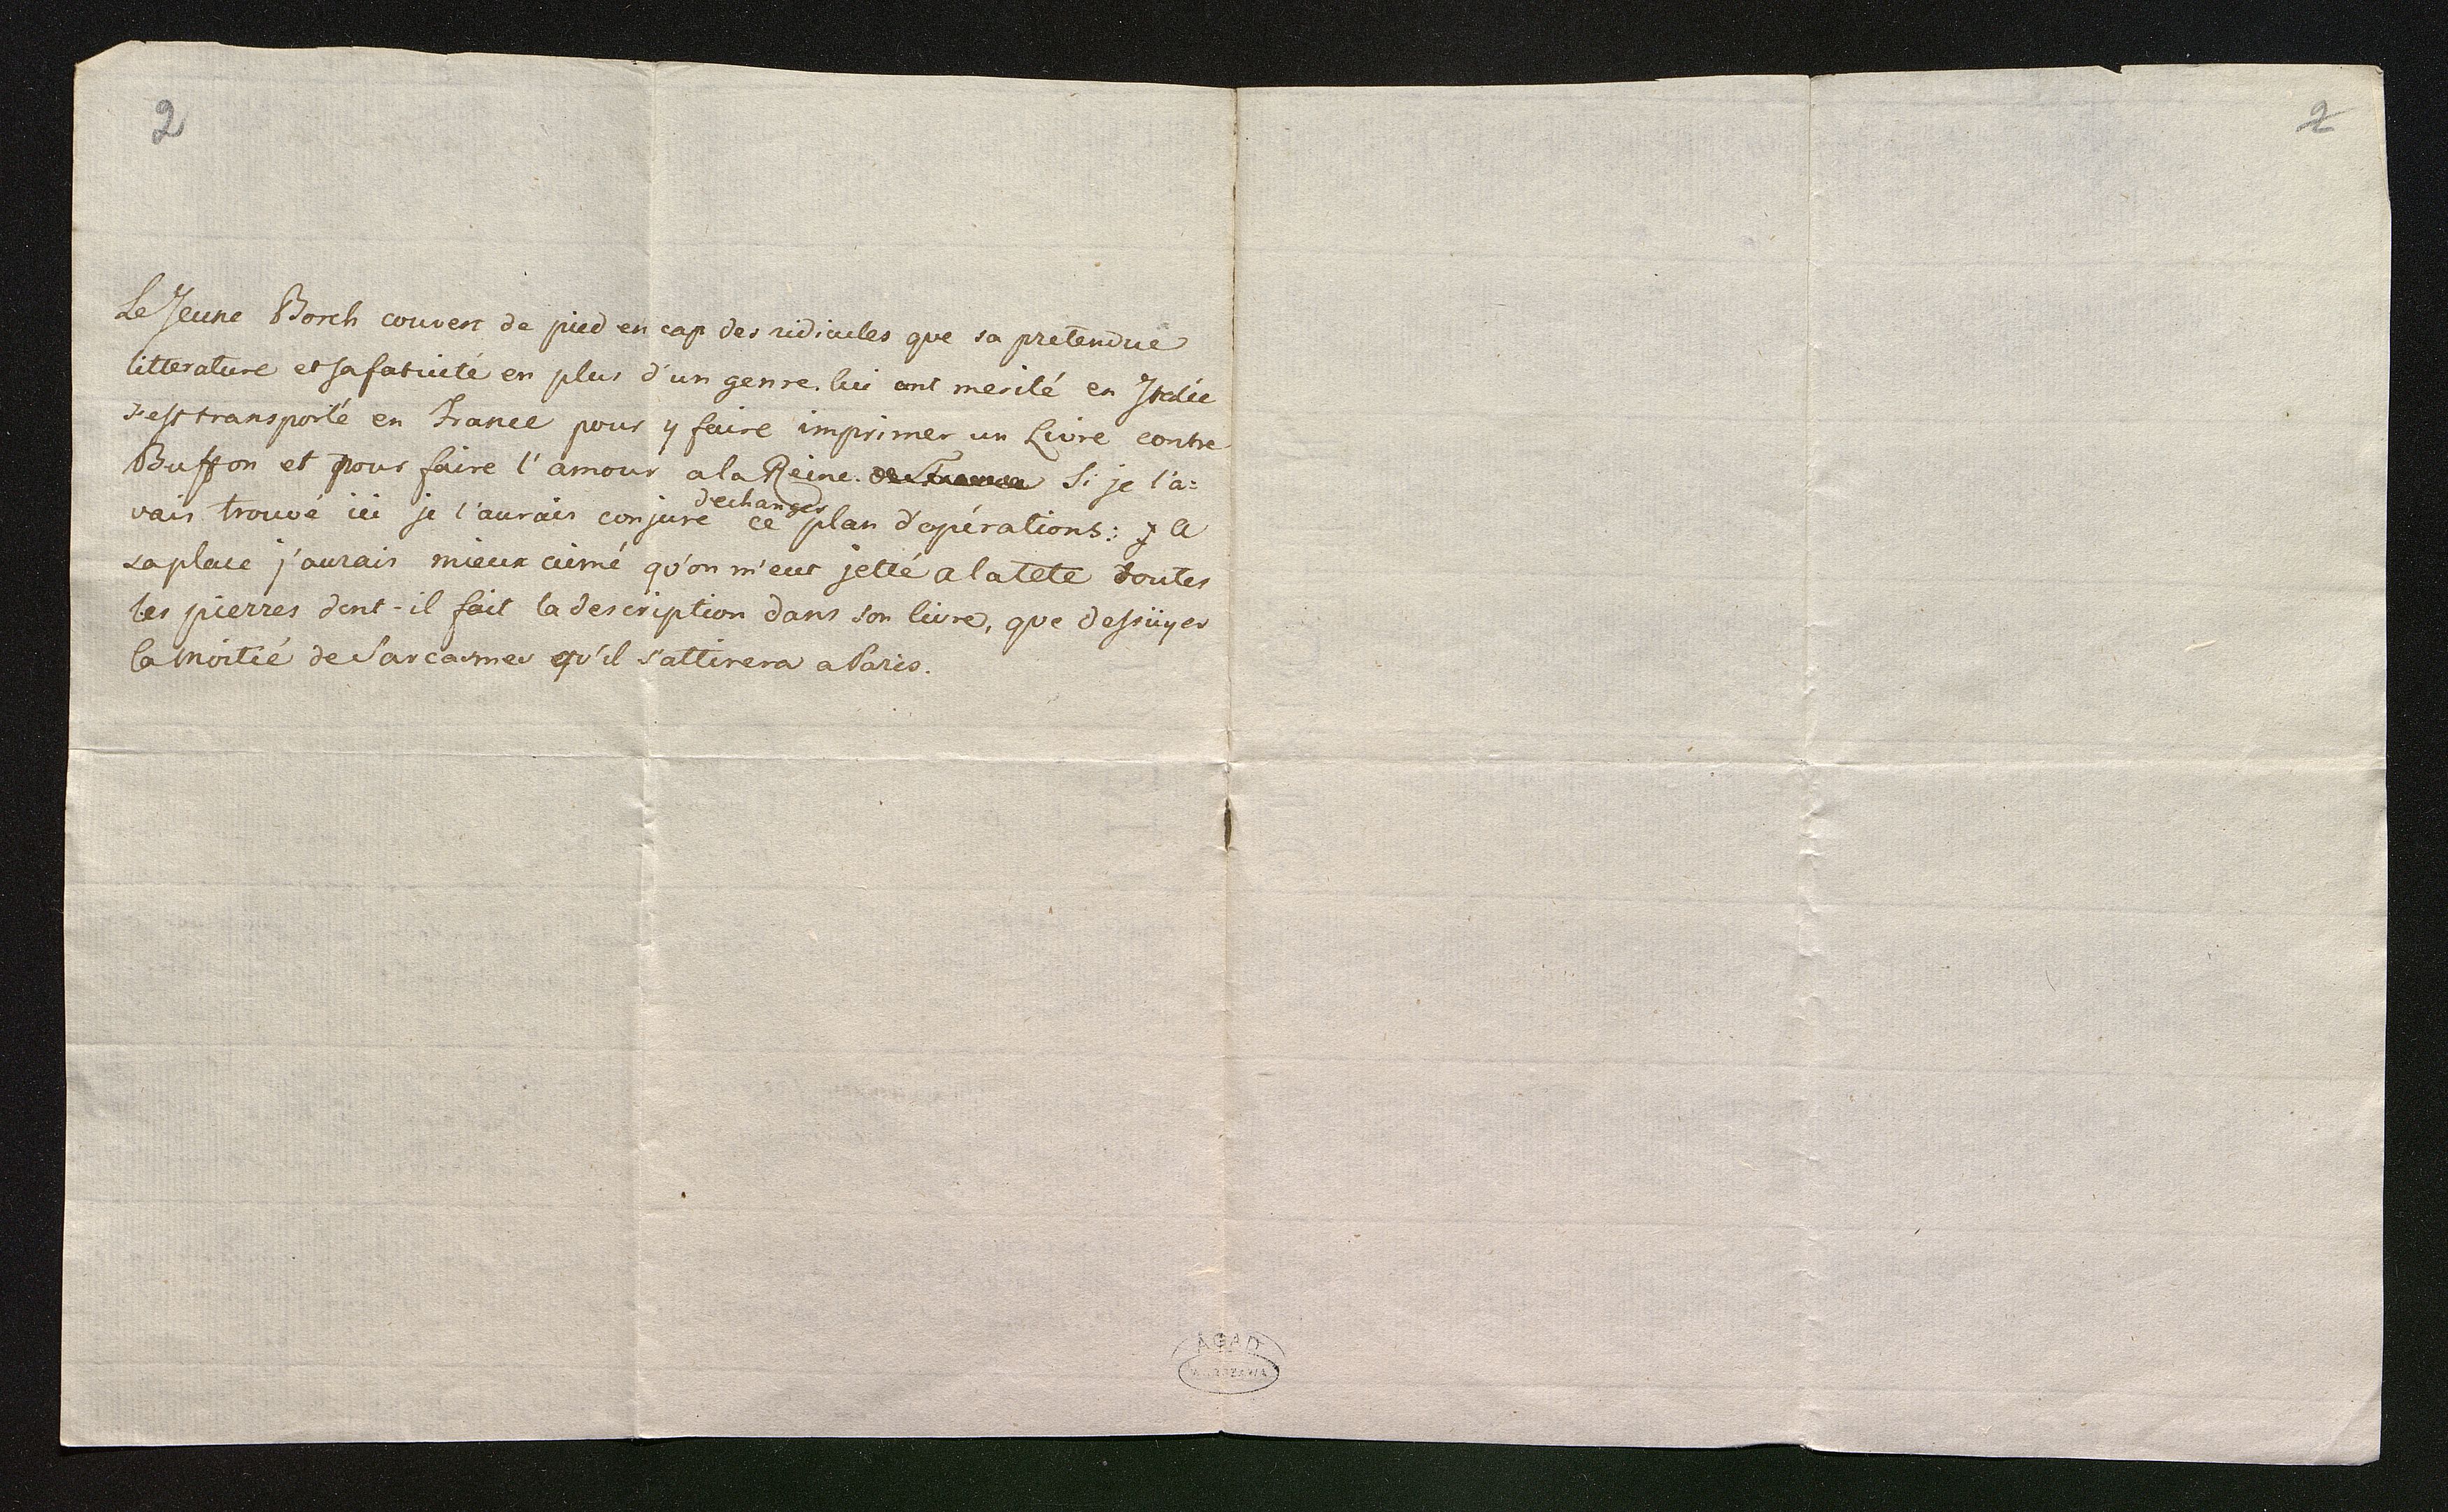 2
2
Le Jeune Borch couvert de pied en cap des ridicules que sa pretendue
litterature et sa fatuité en plus d'un genre lui ont merité en Italie
s'est transporté en France pour y faire imprimer un Livre contre
Buffon et pour faire l'amour a la Reine. de France Si je l'a=
dechanger
vais trouvé ici je l'aurais conjuré ce plan d'opérations: A
sa place j'aurais mieux aimé qu'on m'eut jetté a la tete toutes
les pierres dont-il fait la description dans son livre, que dessüyer
la moitié de Sarcasmes qu'il s'attirera a Paris.
AGAD
WARSZAWA